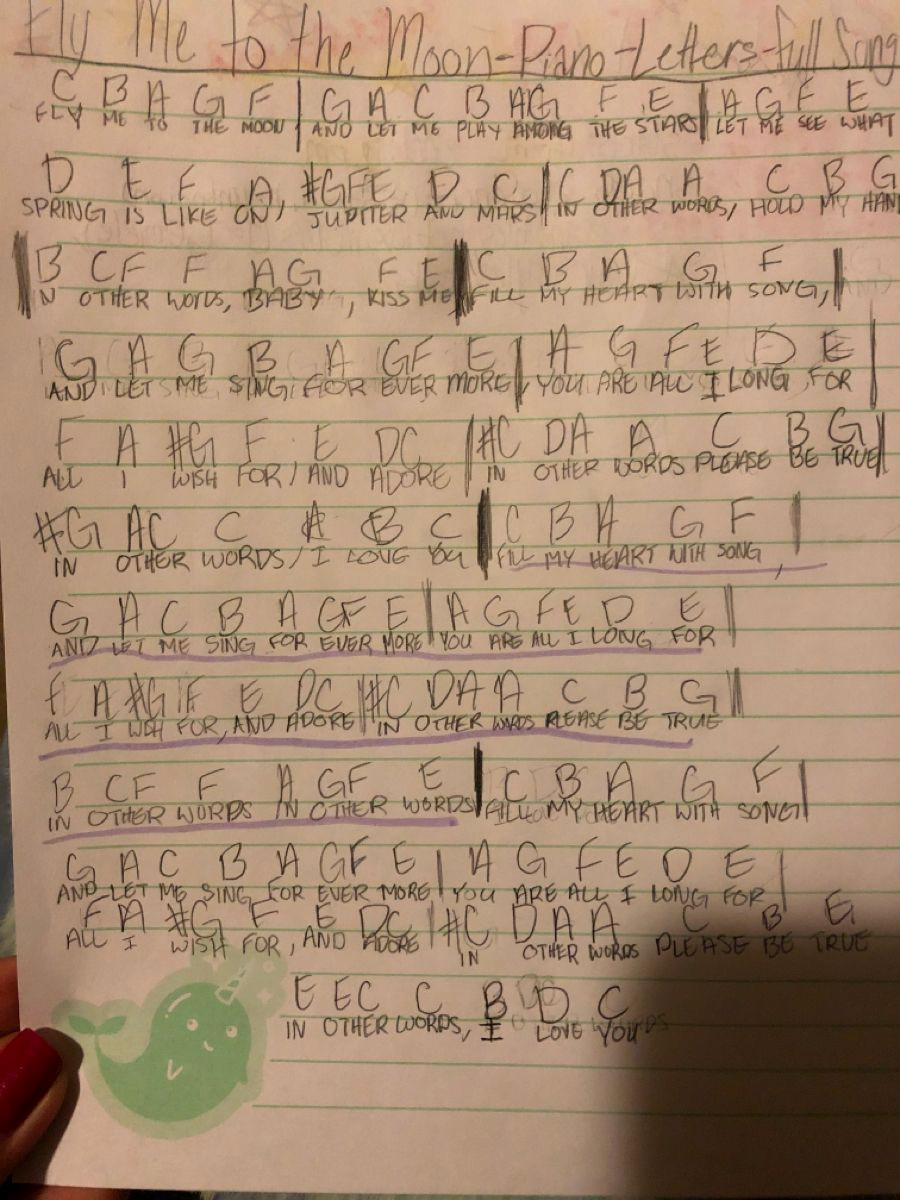 Fly Me to the Moon-Piano-Letters-full Song
C B A G F | G A C B AG F E | A G F E
FLY ME TO THE MOON | AND LET ME PLAY AMONG THE STARS | LET ME SEE WHAT
D E F A #GFE D C | C DA A C B G
SPRING IS LIKE ON, JUPITER AND MARS | IN OTHER WORDS, HOLD MY HAN
B CF F AG F E | C B A G F |
IN OTHER WORDS, BABY, KISS ME FILL MY HEART WITH SONG,
G A G B A GF E | A G F E D E |
AND LET ME SING FOR EVER MORE YOU ARE ALL I LONG FOR
F A #G F E DC | #C DA A C B G |
ALL I WISH FOR, AND ADORE IN OTHER WORDS PLEASE BE TRUE
#G AC C A B C | C B A G F |
IN OTHER WORDS, I LOVE YOU FILL MY HEART WITH SONG,
G A C B A GF E | A G F E D E |
AND LET ME SING FOR EVER MORE YOU ARE ALL I LONG FOR
F A #G F E DC | #C DA A C B G |
ALL I WISH FOR, AND ADORE IN OTHER WORDS PLEASE BE TRUE
B CF F A GF E | C B A G F |
IN OTHER WORDS IN OTHER WORDS FILL MY HEART WITH SONG
G A C B A GF E | A G F E D E |
AND LET ME SING FOR EVER MORE YOU ARE ALL I LONG FOR
F A #G F E DC | #C D A A C B G
ALL I WISH FOR, AND ADORE IN OTHER WORDS PLEASE BE TRUE
E EC C B D C
IN OTHER WORDS, I LOVE YOU